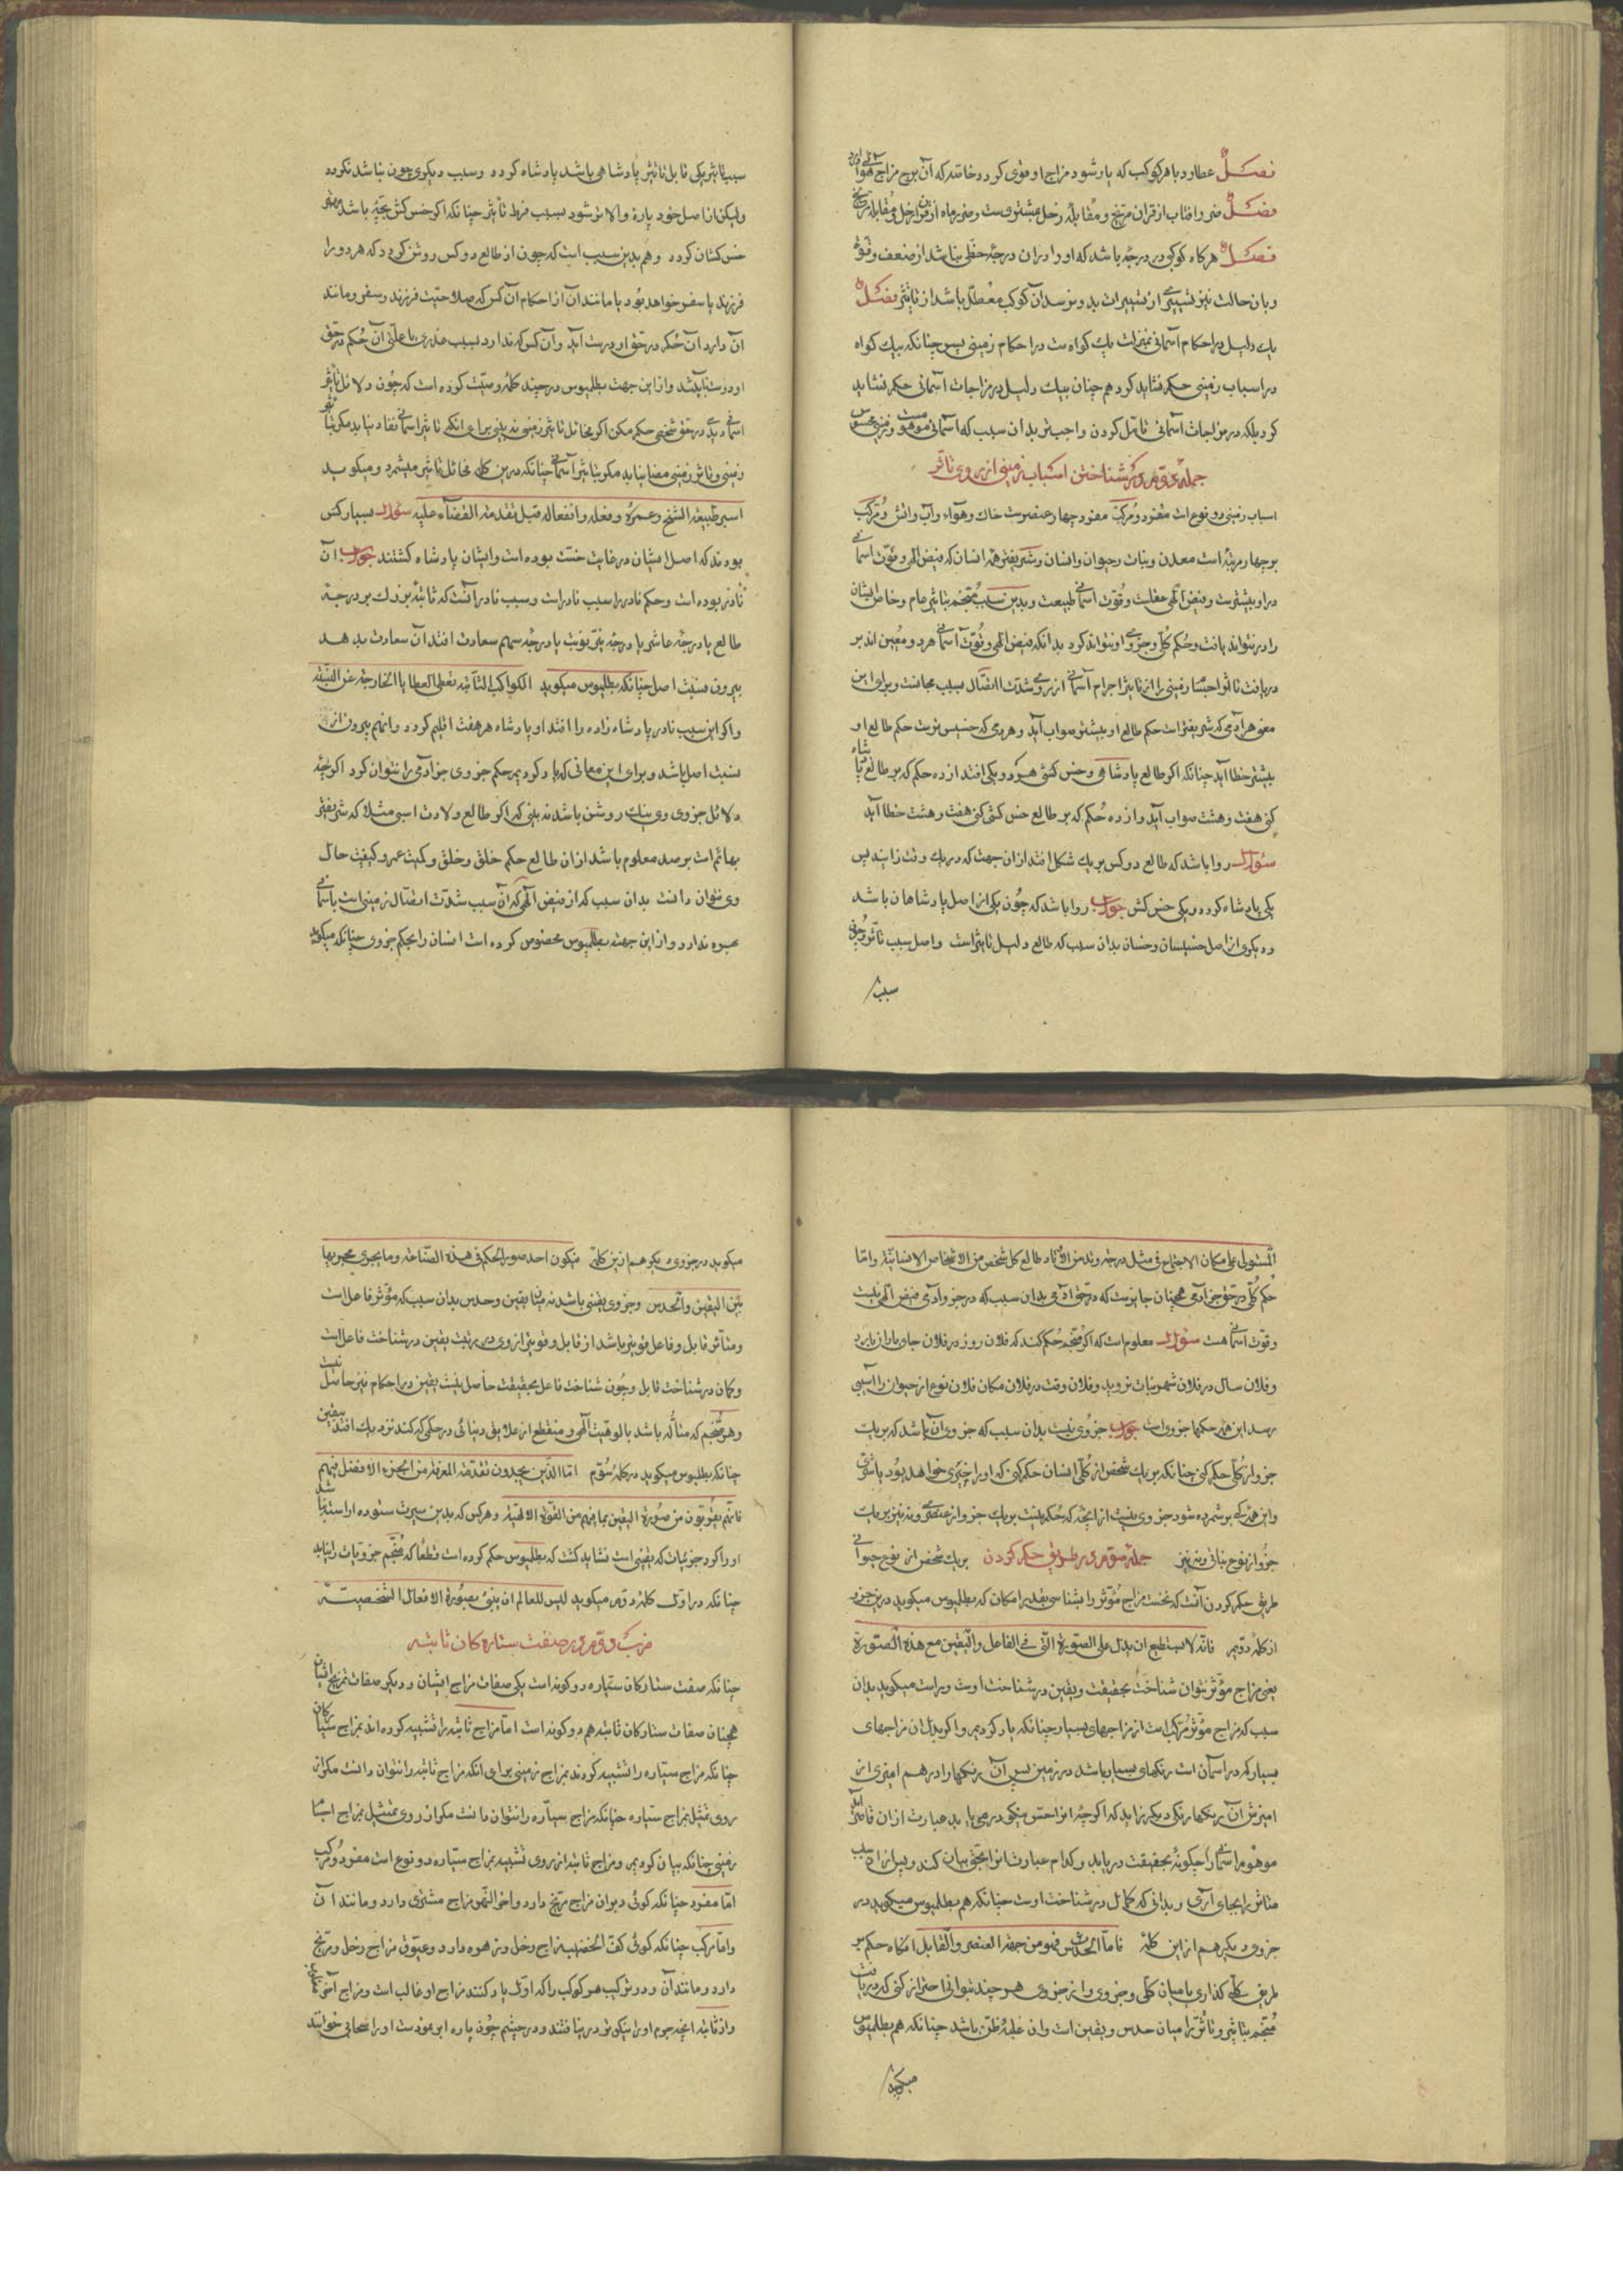 فصل عطارد با هر کوکب که یار شود مزاج او قوی گردد خاصه که آن برج مزاج هوائی دارد
فصل ضرر آفتاب از قران مریخ و مقابله زحل بیشترست و ضرر ماه از قران زحل و مقابله مریخ
فصل هرگاه کوکبی در درجهٔ باشد که او را در آن درجه حظی نباشد از ضعف و قوة
و بآن حالت نیز تسییری از تسییرات بدو نرسد آن کوکب معطل باشد از تاثیر فصل
یك دلیل در احکام آسمانی بمنزلت یك گواه ست در احکام زمینی پس چنانکه بیك گواه
در اسباب زمینی حکم نشاید کرد همچنان بیك دلیل در مزاجات آسمانی حکم نشاید
کرد بلکه در مزاجات آسمانی تامل کردن واجب تر بدان سبب که آسمانی موهومست و زمینی محسوس
جملهٔ دوم در شناختن اسباب زمینی از روی تاثر
اسباب زمینی دو نوع است مفرد و مرکب مفرد چهار عنصرست خاك و هواء و آب و اتش و مرکب
بر چهار مرتبه است معدن و نبات و حیوان و انسان و شریفترین همه انسان که فیض الهی و قوت آسمانی
در او بیشترست و فیض الهی عقلست و قوت آسمانی طبیعت و بدین سبب منجم تاثیر عام و خاص ایشان
را در نتواند یافت و حکم کلی و جزوی او نتواند کرد بدانکه فیض الهی و قوت آسمانی هر دو معین اند بر
دریافت تاثر اجسام زمینی را از تاثیر اجرام آسمانی از روی شدت اتصال بسبب مجانست و برای این
معنی هر آدمی که شریفترست حکم طالع او بیشتر صواب آید و هر آدمی که خسیس ترست حکم طالع او
بیشتر خطا آید چنانکه اگر طالع پادشاهی و خس کشی هر دو یکی افتد از ده حکم که بر طالع پادشاه
کنی هفت و هشت صواب آید و از ده حکم که بر طالع خس کش کنی هفت و هشت خطا آید
سؤال روا باشد که طالع دو کس بر یك شکل افتد ازان جهت که در یك وقت زایند پس
یکی پادشاه گردد و یکی خس کش جواب روا باشد که چون یکی از اصل پادشاهان باشد
و دیگری از اصل خسیسان و خسان بدان سبب که طالع دلیل تاثیرست و اصل سبب تاثر و چون
سبب
سبب تاثیر یکی قابل تاثیر پادشاهی باشد پادشاه گردد و سبب دیگری چون نباشد نگردد
ولیکن از اصل خود پارهٔ والاتر شود بسبب فرط تأثیر چنانکه اگر خس کش بچهٔ باشد مهتر
خس کشان گردد و هم بدین سبب است که چون از طالع دو کس روشن گردد که هر دو را
فرزند یا سفر خواهد بود یا مانند آن از احکام آن کس که صلاحیت فرزند و سفر و مانند
آن دارد آن حکم در حق او درست آید و آن کس که ندارد بسبب عذری یا علتی آن حکم در حق
او درست نیاید و از این جهت بطلمیوس در چند کلمه وصیت کرده است که چون دلائل تأثیر
آسمانی دیدی در حق شخصی حکم مکن اگر مخائل تاثر زمینی نه بینی برای انکه تاثیر آسمانی نفاد نیابد مگر بتاثر
زمینی و تاثر زمینی مضا نیابد مگر بتاثیر آسمانی چنانکه درین کلمه مخائل تاثر میشمرد و میگوید
اسبر طبیعة الشخ وعمره وفعله وانفعاله قبل تقدمة القضاء علیه سؤال بسیار کس
بودند که اصل ایشان در غایت خست بوده است و ایشان پادشاه گشتند جواب آن
نادر بوده است و حکم نادر را سبب نادرست و سبب نادر آنست که ثابتهٔ بزرك بر درجهٔ
طالع یا درجهٔ عاشر یا درجه نیر نوبت یا درجه سهم سعادت افتد آن سعادت بدهد
بیرون نسبت اصل چنانکه بطلمیوس میگوید الکواکب الثابته تعطی العطایا الخارجة عن النسبة
و اگر این سبب نادر پادشاه زاده را افتد او پادشاه هر هفت اقلیم گردد و انهم بیرون از
نسبت اصل باشد و برای این معانی که یاد کردیم حکم جزوی جز آدمی را نتوان کرد اگرچه
دلائل جزوی وی بنایت روشن باشد نه بینی که اگر طالع ولادت اسبی مثلا که شریفتر
بهائم است برصد معلوم باشد ازان طالع حکم خلق و خلق و کمیت عمر و کیفیت حال
وی نتوان دانست بدان سبب که از فیض الهی که آن سبب شدت اتصال زمینی است باسمانی
بهره ندارد و از این جهت بطلمیوس مخصوص کرده است انسان را بحکم جزوی چنانکه میگوید
المستولی علی مکان الاجتماع فی مثل درجة وتد من الاوتاد طالع کل شخص من الاشخاص الانسانیة واما
حکم کلی در حق جز آدمی همچنان جایزست که در حق آدمی بدان سبب که در جز و آدمی فیض الهی نیست
و قوت آسمانی هست سؤال معلوم است که اگر منجم حکم کند که فلان روز در فلان جای باران بارد
و فلان سال در فلان شهر نبات نروید و فلان وقت در فلان مکان فلان نوع از حیوان را آسیبی
رسد این همه حکمها جزوی است جواب جزوی نیست بدان سبب که جزوی آن باشد که بر یك
جزو از کلی حکم کنی چنانکه بر یك شخص از کلی انسان حکم کنی که او را چیزی خواهد بود یا شری
و این همه که بر شمرده شود جزوی نیست از آنچه که حکم نیست بر یك جزو از عنصری و نه نیز بر یك
جزو از نوع نباتی و نه نیز بر یك شخص از نوع حیوانی جملهٔ سوم در طریق حکم کردن
طریق حکم کردن آنست که نخست مزاج مؤثر را بشناسی بقدر امکان که بطلمیوس میگوید درین جزو
از کلمهٔ دویم فانه لا یستطیع ان یدل علی الصورة التی فی الفاعل والیقین مع هذه الصورة
یعنی مزاج مؤثر نتوان شناخت بحقیقت و یقین در شناخت اوست و براست میگوید بدان
سبب که مزاج مؤثر مرکب است از مزاجهای بسیار چنانکه یاد کردیم و اگر بدل آن مزاجهای
بسیار که در آسمان است رنگهای بسیار باشد در زمین پس آن رنگها را در هم امیزی از
امیزش آن رنگها رنگی دیگر زاید که اگرچه انرا حس نیکو در می یابد عبارت ازان قاصر آید
موهوم آسمانی را چگونه بحقیقت دریابد و کدام عبارت انرا بحق بیان کند و پس ازان سبب
متاثر را بجای آری و بدانی که کمال در شناخت اوست چنانکه هم بطلمیوس میگوید در
جزوی دیگر هم از این کلمه فاما الحدس فهو من جهة العنصر والقابل انگاه حکم بر
طریق کلی گذاری یا میان کلی و جزوی و از جزوی هر چند بتوانی احتراز کنی که دریافت
منجم بتاثیر و تاثر را میان حدس و یقین است و ان غلبهٔ ظن باشد چنانکه هم بطلمیوس
میگوید
میگوید در جزوی دیگر هم از ین کلمه فیکون احد صور الحکم فی هذه الصناعة وما یجری مجریها
بین الیقین والحدس و جزوی یقینی باشد نه میان یقین و حدس بدان سبب که مؤثر فاعل است
و متأثر قابل و فاعل قویتر باشد از قابل و قویتر از وی در رتبت یقین در شناخت فاعل است
و کمان در شناخت قابل و چون شناخت فاعل بحقیقت حاصل نیست یقین در احکام نیز حاصل نیست
و هر منجم که متأله باشد بالوهیت الهی و منقطع از علایق دنیائی در حکمی که کند نزدیك افتد بیقین
چنانکه بطلمیوس میگوید در کلمهٔ سوم اما الذین یجدون تقدمة المعرفة من الجزء الافضل فیهم
فانهم یقربون من صورة الیقین بما فیهم من القوة الالهیة و هرکس که بدین سیرت ستوده اراسته باشد
او را گرد جزئیات که یقینی است نشاید کشت که بطلمیوس حکم کرده است قطعا که منجم جزویات را نیابد
چنانکه در اول کلمهٔ دوم میگوید لیس للعالم ان ینبئ بصورة الافعال الشخصیة
ضرب دوم در صفت ستاره کان ثابته
چنانکه صفت ستارکان سیاره دو گونه است یکی صفات مزاج ایشان و دیگر صفات تمزیج ایشان
همچنان صفات ستارکان ثابته هم دو گونه است اما مزاج ثابته را تشبیه کرده اند بمزاج سیارکان
چنانکه مزاج سیاره را تشبیه کردند بمزاج زمینی برای انکه مزاج ثابته را نتوان دانست مگر از
روی تمثل بمزاج سیاره چنانکه مزاج سیاره را نتوان دانست مگر از روی تمثل بمزاج اشیا
زمینی چنانکه بیان کردیم و مزاج ثابته از روی تشبیه بمزاج سیاره دو نوع است مفرد و مرکب
اما مفرد چنانکه کوئی دبران مزاج مریخ دارد و اخر النهر مزاج مشتری دارد و مانند آن
و اما مرکب چنانکه کوئی کف الخضیب مزاج زحل و زهره دارد و عیوق مزاج زحل و مریخ
دارد و مانند آن و در ترکیب هر کوکب را که اول یاد کنند مزاج او غالب است و مزاج آخر مغلوب
و از ثابته انچه جرم او را نیکو در نیافتند و در چشم چون پاره ابر بودست او را سحابی خوانند